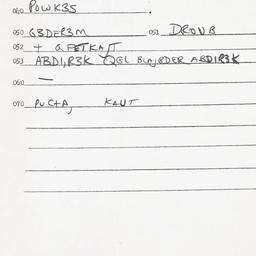 040 POWK35
050 G3DFR3M 051 DRONB
052 + QFETKAJT
053 ABDI,R3K QGL BLOJRDER ABDIR3K
060 —
070 PUCTA, KAUT